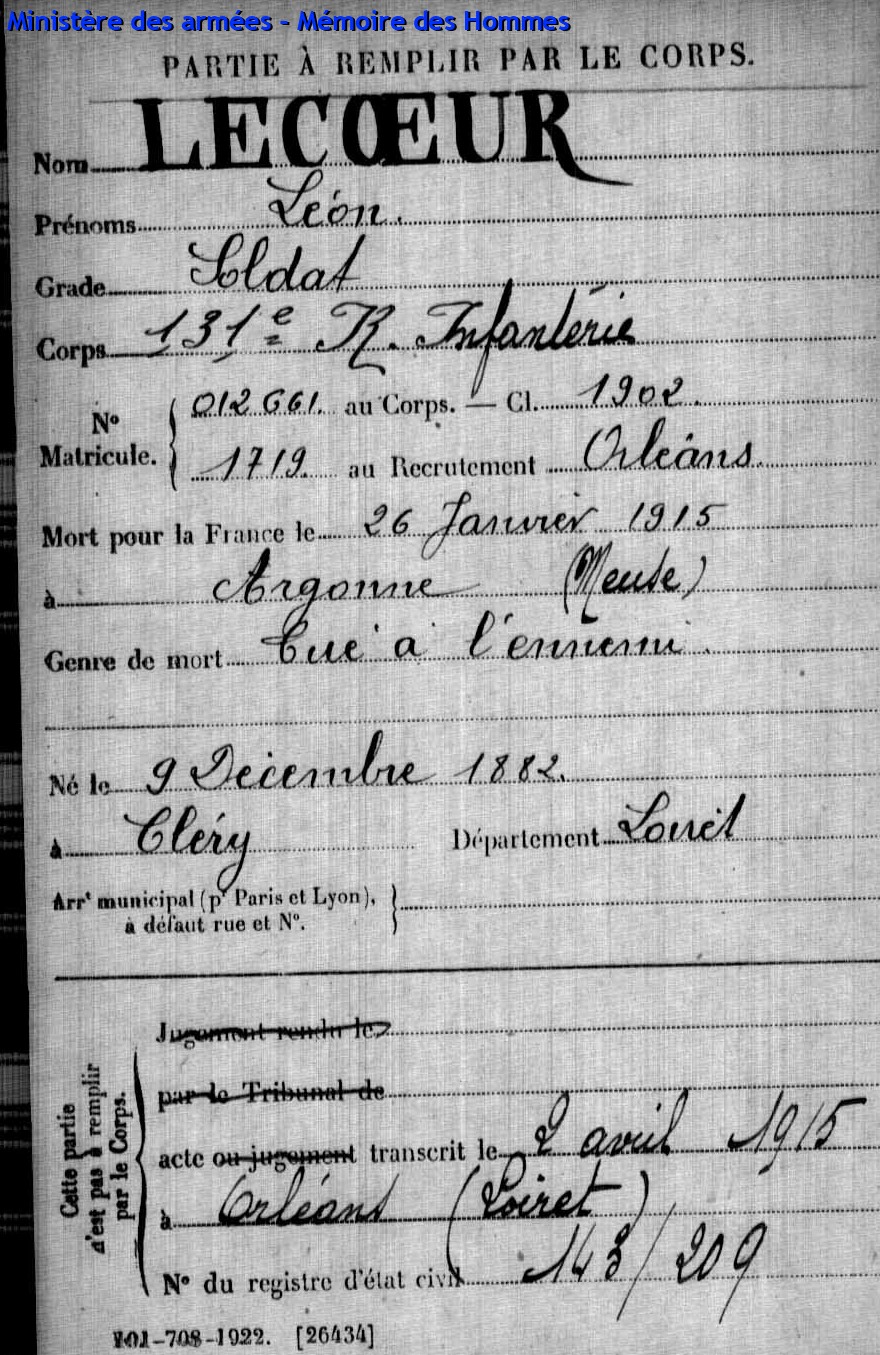 Ministère des armées - Mémoire des Hommes
PARTIE À REMPLIR PAR LE CORPS.
Nom LECŒUR
Prénoms Léon.
Grade Soldat
Corps 131e R. Infanterie
Nº Matricule. { 012661. au Corps. — Cl. 1902.
1719. au Recrutement Orléans
Mort pour la France le 26 Janvier 1915
à Argonne (Meuse)
Genre de mort Tué à l'ennemi.
Né le 9 Décembre 1882.
à Cléry Département Loiret
Arrt municipal (pr Paris et Lyon),
à défaut rue et Nº.
Cette partie
n'est pas à remplir
par le Corps.
Jugement rendu le
par le Tribunal de
acte ou jugement transcrit le 2 avril 1915
à Orléans (Loiret)
Nº du registre d'état civil 143/209
101-708-1922. [26434]